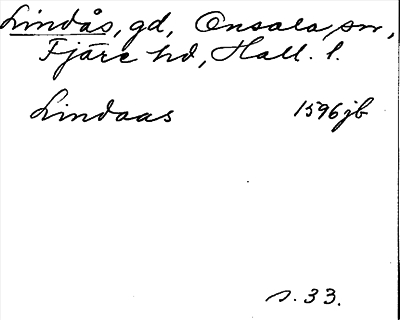 Lindås, gd, Onsala sn,
Fjäre hd, Hall. l.
Lindaas 1596 jb
s. 33.